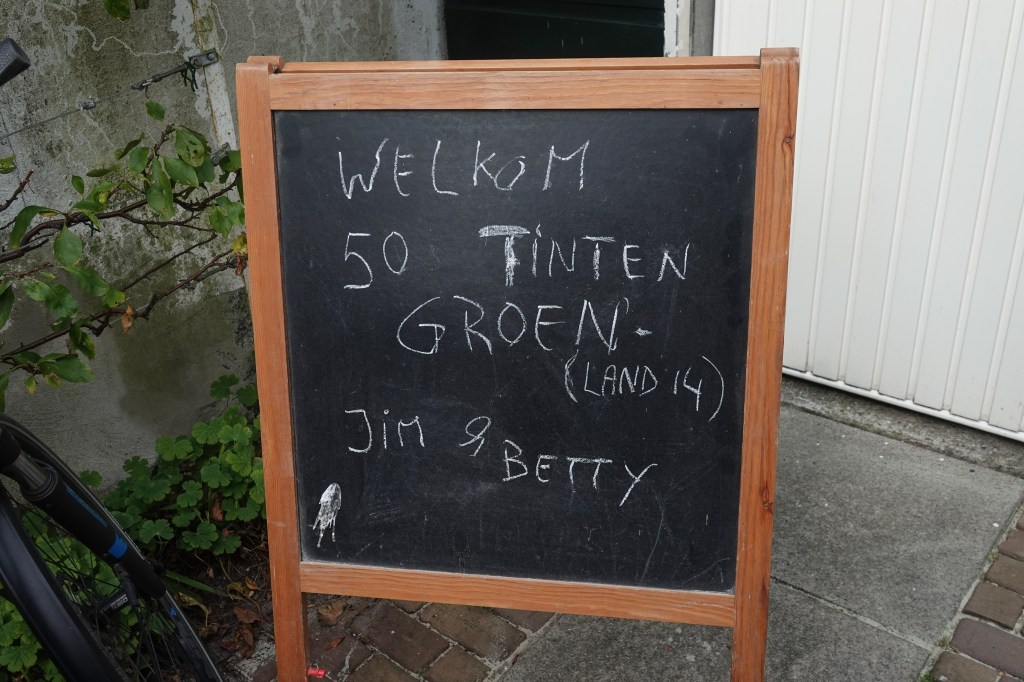 WELKOM
50 TINTEN
GROEN-
(LAND 14)
Jim & BETTY